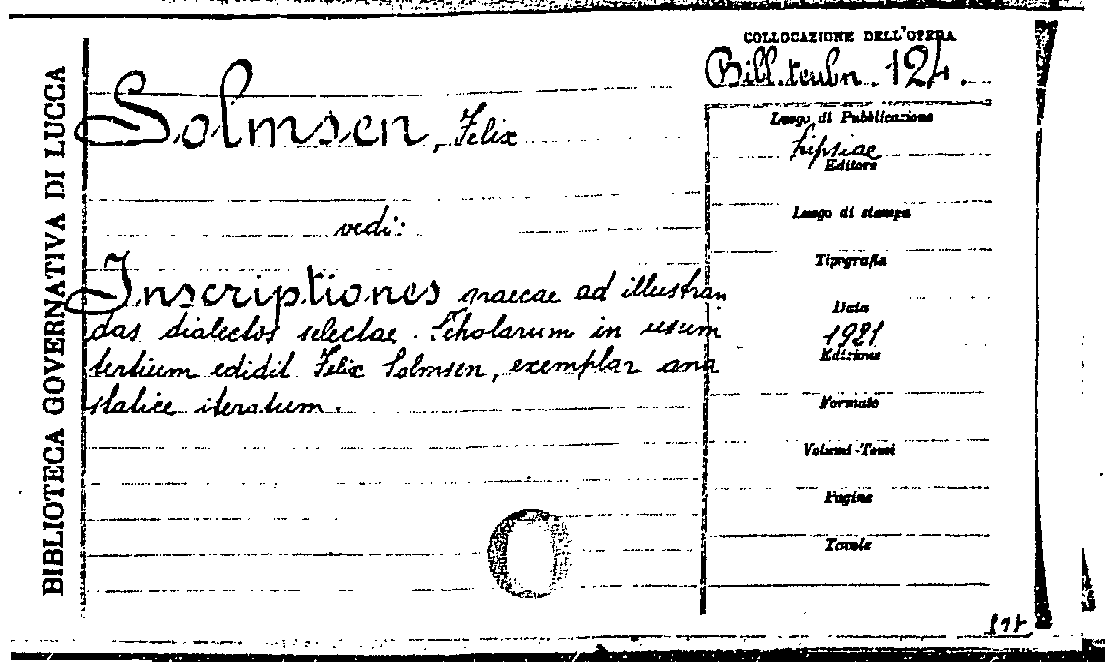 BIBLIOTECA GOVERNATIVA DI LUCCA
COLLOCAZIONE DELL'OPERA
Bibl. teubn. 124.
Solmsen, Felix
vedi:
Inscriptiones graecae ad illustran
das dialectos selectae. Scholarum in usum
tertium edidit Felix Solmsen, exemplar ana
statice iteratum.
Luogo di Pubblicazione
Lipsiae
Editore
Luogo di stampa
Tipografia
Data
1921
Edizione
Formato
Volumi-Tomi
Pagine
Tavole